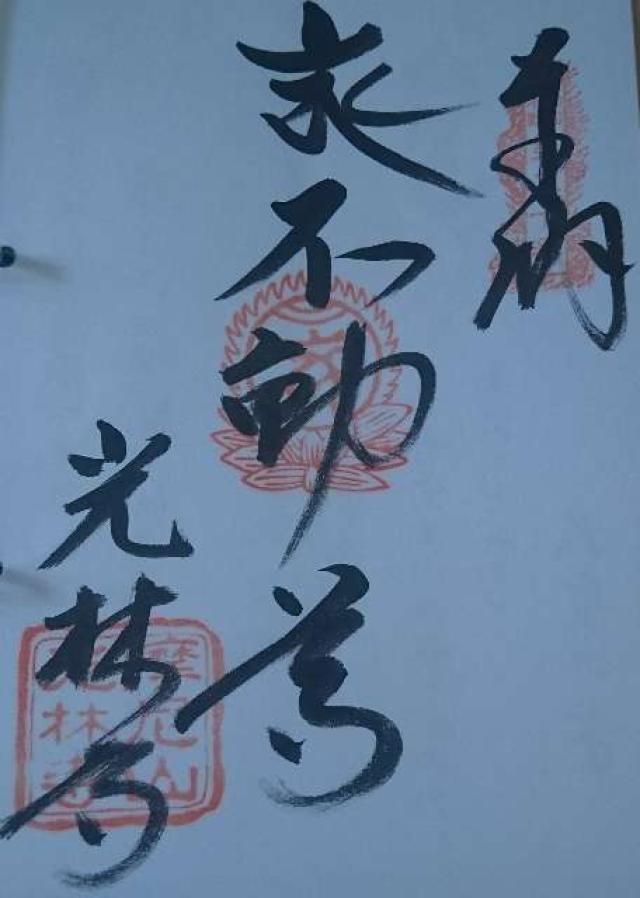 奉納
求不動尊
光林寺
摩尼山
光林寺